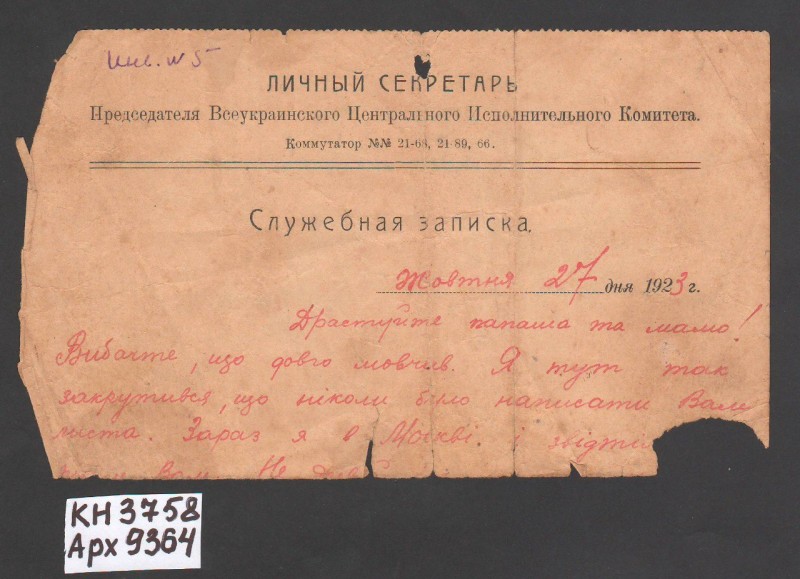 Инв. № 5
ЛИЧНЫЙ СЕКРЕТАРЬ
Председателя Всеукраинского Центрального Исполнительного Комитета.
Коммутатор №№ 21-68, 21-89, 66.
Служебная записка.
Жовтня 27 дня 1923 г.
Драстуйте папаша та мамо!
Вибачте, що довго мовчив. Я тут так
закрутився, що ніколи було написати Вам
листа. Зараз я в Москві і звідти
Вам. Не
КН 3758
Арх 9364